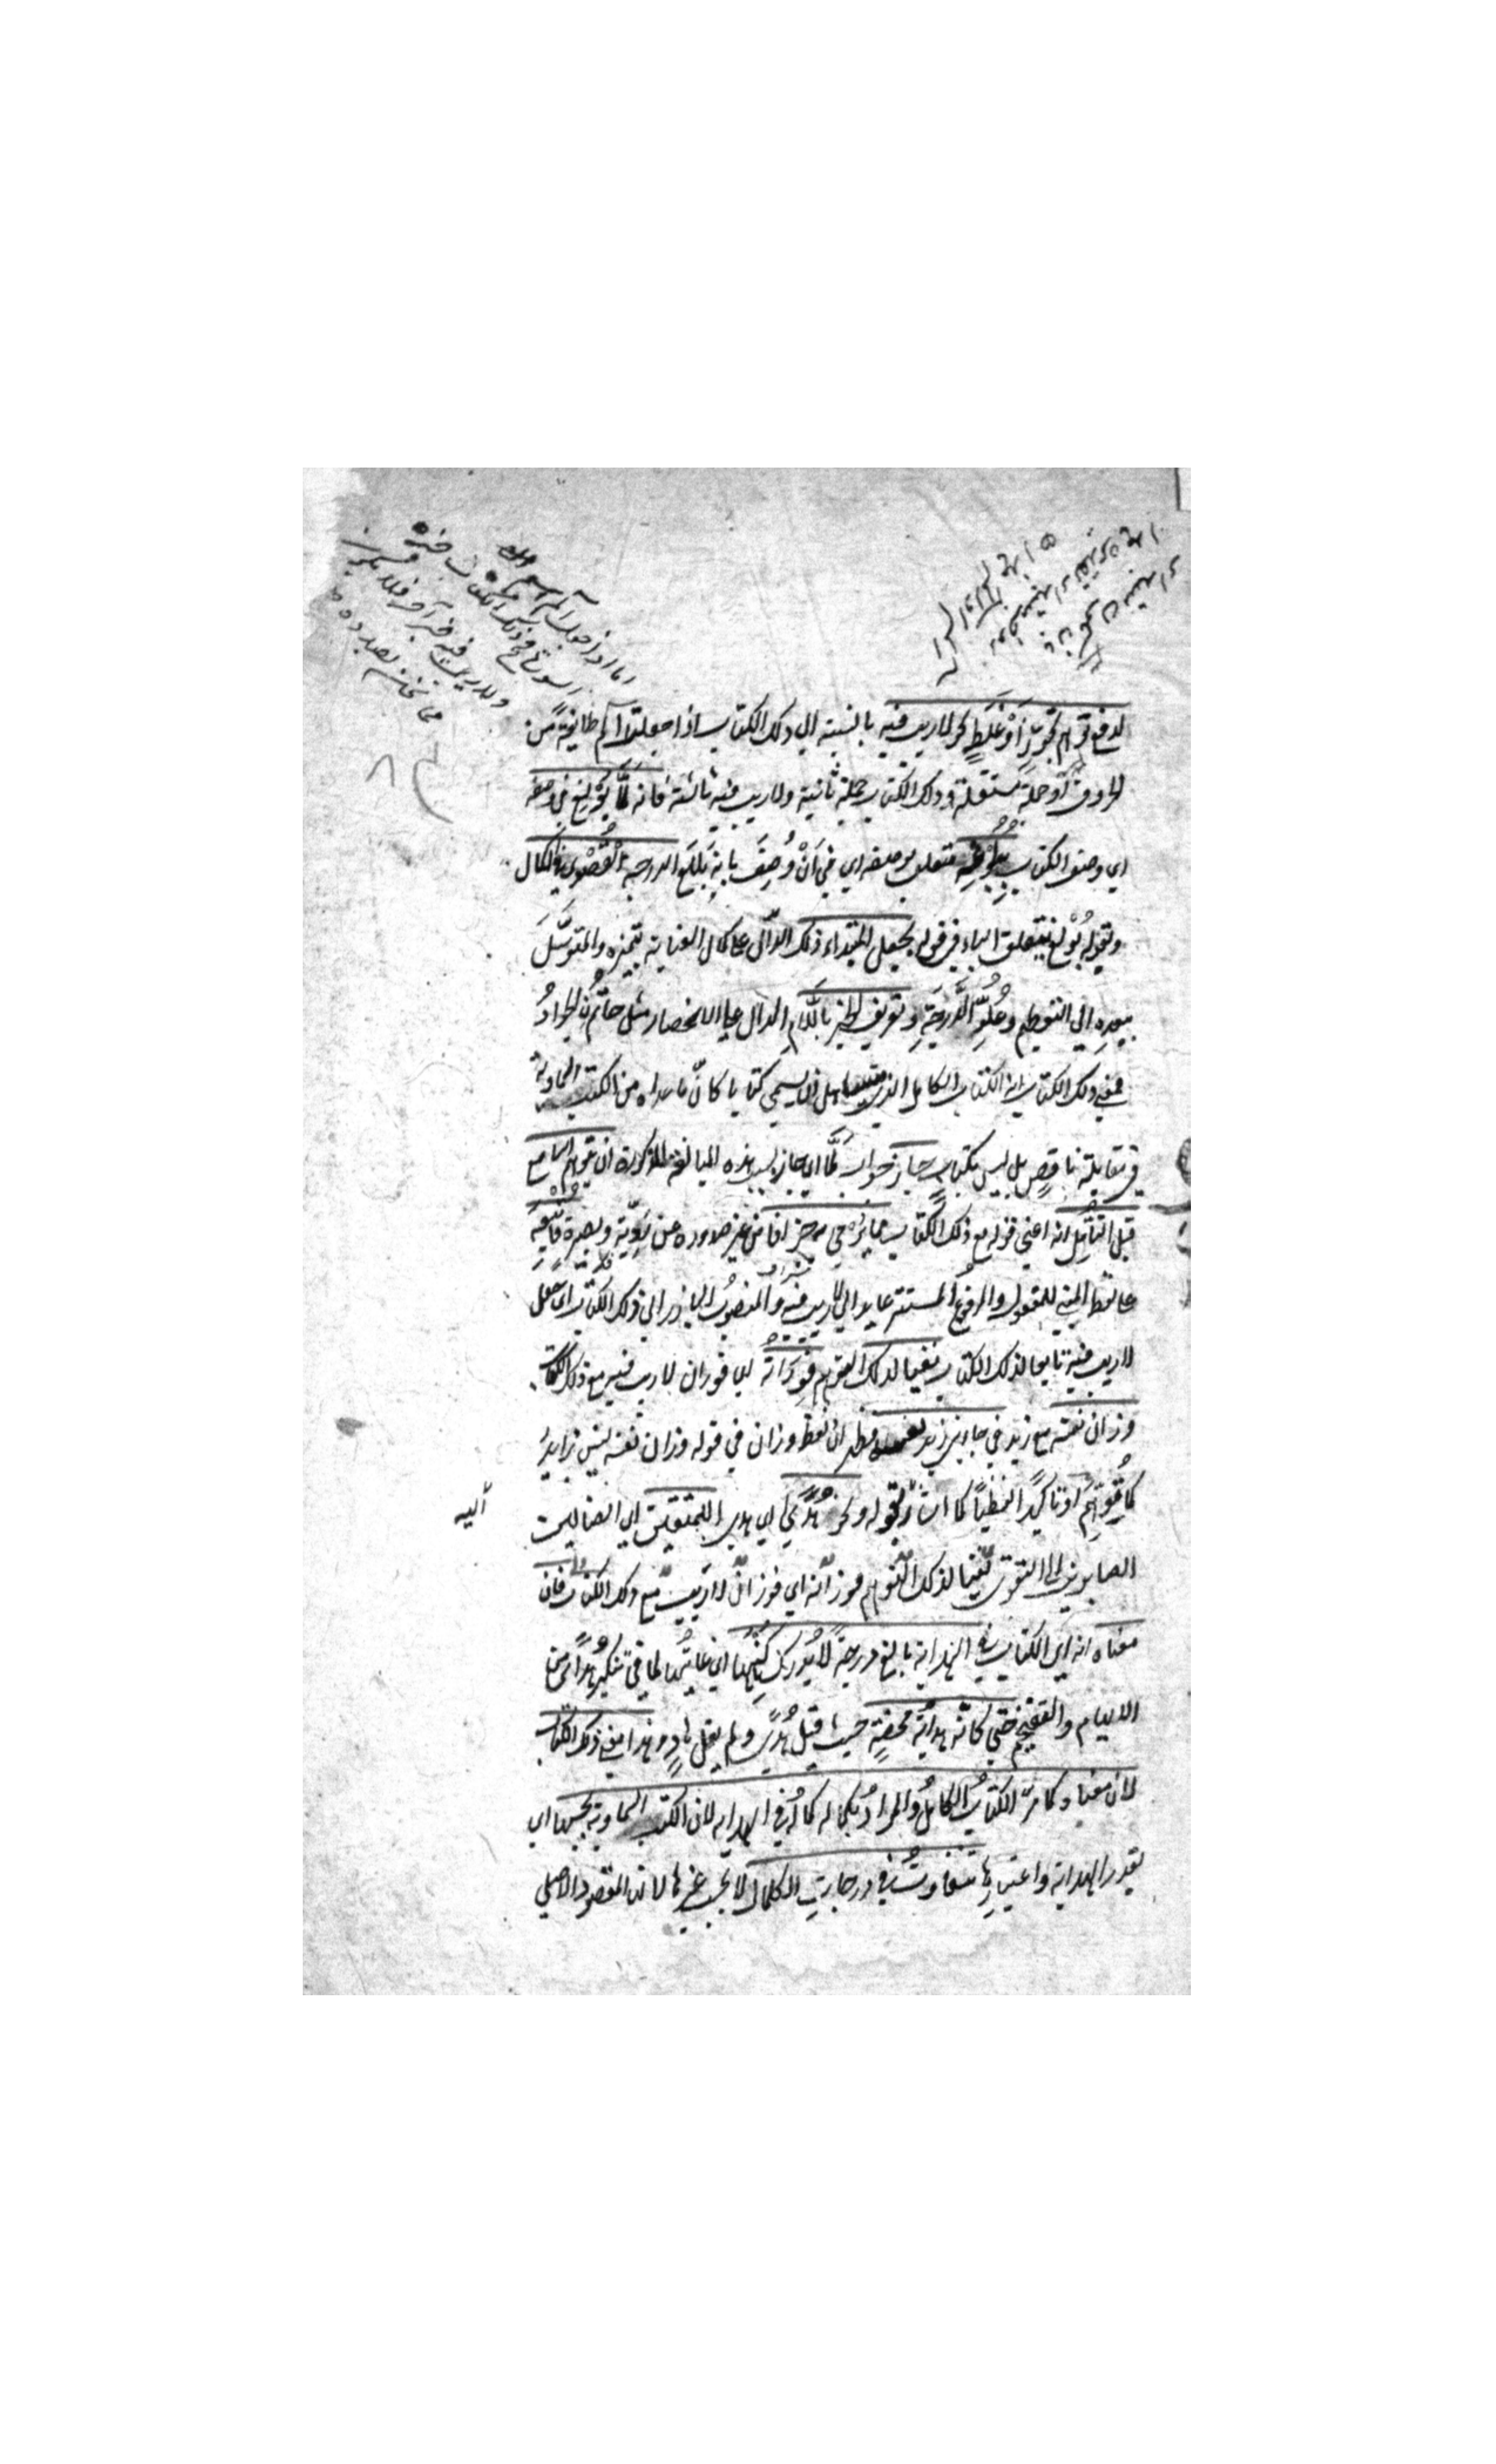 لدفع توهم تجوز أو غلط نحو لا ريب فيه بالنسبة الى ذلك الكتاب اذا جعلت الم طائفة من
الحروف أو جملة مستقلة وذلك الكتاب جملة ثانية ولا ريب فيه ثالثة فانه لما بولغ في وصفه
اي وصف الكتاب ببلوغه متعلق بوصفه اي في أن وصف بانه بلغ الدرجة القصوى في الكمال
وبقوله بولغ يتعلق الباء في قوله بجعل المبتداء ذلك الدال على كمال العناية بتميزه والتوسل
ببعده الى التعظيم وعلو الدرجة وتعريف الخبر باللام الدال على الانحصار مثل حاتم الجواد
فمعنى ذلك الكتاب انه الكتاب الكامل الذي يستاهل ان يسمى كتابا كان ما عداه من الكتب السماوية
في مقابلته ناقص بل ليس بكتاب جاز جواب لما اي جاز بسبب هذه المبالغة المذكورة ان يتوهم السامع
قبل التأمل انه اعني قوله مع ذلك الكتاب مما يرمى به جزافا من غير صدوره عن روية وبصيرة فاتبعه
على لفظ المبني للمفعول والمرفوع المستتر عايد الى لا ريب فيه والمنصوب البارز الى ذلك الكتاب اي جعل
لا ريب فيه تابعا لذلك الكتاب نفيا لذلك التوهم فوزانه اي فوزان لا ريب فيه مع ذلك الكتاب
وزان نفسه مع زيد في جاءني زيد نفسه فظهر ان لفظ وزان في قوله وزان نفسه ليس زايدا
كما توهم او تاكيدا لفظيا كما اشار اليه بقوله ونحو هدى اي هدى للمتقين اي الضالين
الصايرين الى التقوى نفيا لذلك التوهم فوزانه اي فوزان لا ريب مع ذلك الكتاب فان
معناه انه اي الكتاب في الهداية بالغ درجة لا يدرك كنهها اي غايتها لما في تنكير هدى من
الابهام والتفخيم حتى كانه هداية محضة حيث قيل هدى ولم يقل هاد وهذا معنى ذلك الكتاب
لان معناه كما مر الكتاب الكامل والمراد بكماله كماله في الهداية لان الكتب السماوية بحسبها اي
بقدر الهداية واعتبارها تتفاوت في درجات الكمال لا بحسب غيرها لانه المقصود الاصلي